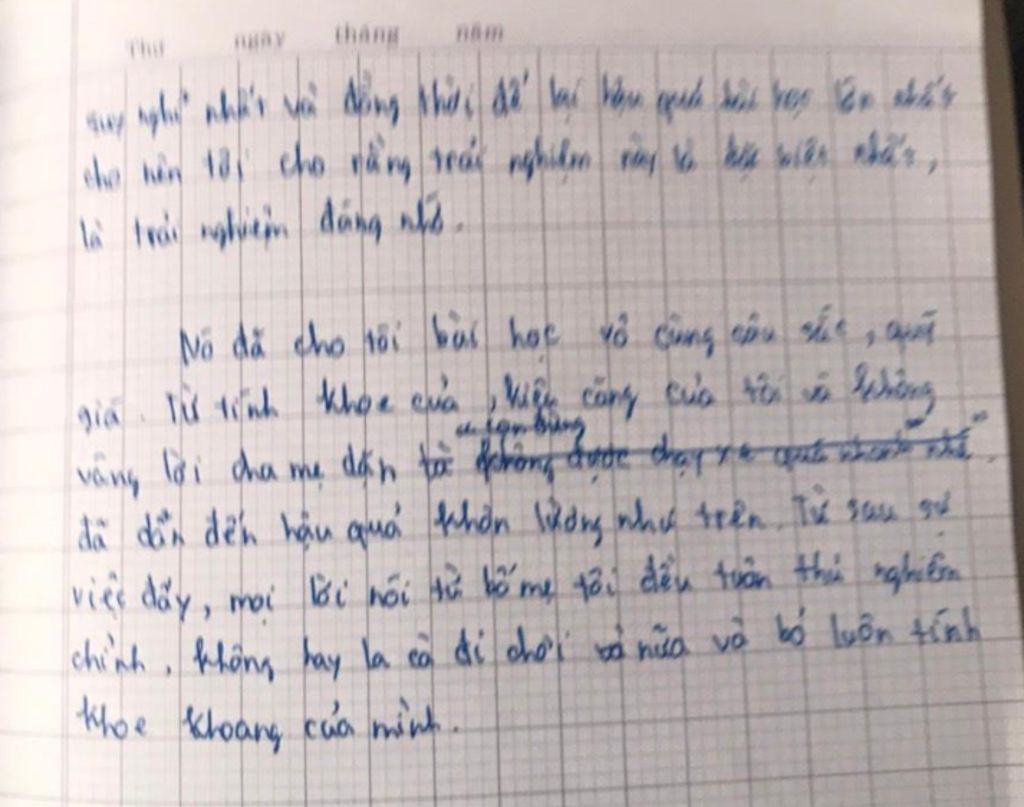 Thứ ngày tháng năm
suy nghĩ nhất và đồng thời để lại hậu quả bài học lớn nhất
cho nên tôi cho rằng trải nghiệm này là nhất,
là trải nghiệm đáng nhớ.
Nó đã cho tôi bài học vô cùng sâu sắc, quý
giá. Từ tính khoe của, kiêu căng của tôi và không
vâng lời cha mẹ dặn từ không được chạy xe quá nhanh
đã dẫn đến hậu quả khôn lường như trên. Từ sau sự
việc đấy, mọi lời nói từ bố mẹ tôi đều tuân thủ nghiêm
chỉnh, không hay la cà đi chơi nữa và bỏ luôn tính
khoe khoang của mình.